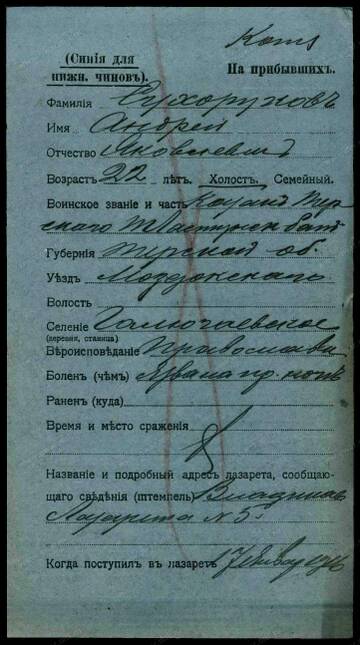 (Синія для
нижн. чиновъ).
На прибывшихъ.
Фамилія Сухоруковъ
Имя Андрей
Отчество Яковлевич
Возрастъ 22 лѣтъ. Холостъ. Семейный.
Воинское званіе и часть Казакъ Тер
скаго Пластунск бат
Губернія Терской об.
Уѣздъ Моздокскаго
Волость
Селеніе Галюгаевское
(деревня, станица)
Вѣроисповѣданіе Православн
Боленъ (чѣмъ) Язва пр.
Раненъ (куда)
Время и мѣсто сраженія
Названіе и подробный адресъ лазарета, сообщаю-
щаго свѣдѣнія (штемпель) Владикав
Лазарета № 5.
Когда поступилъ въ лазаретъ